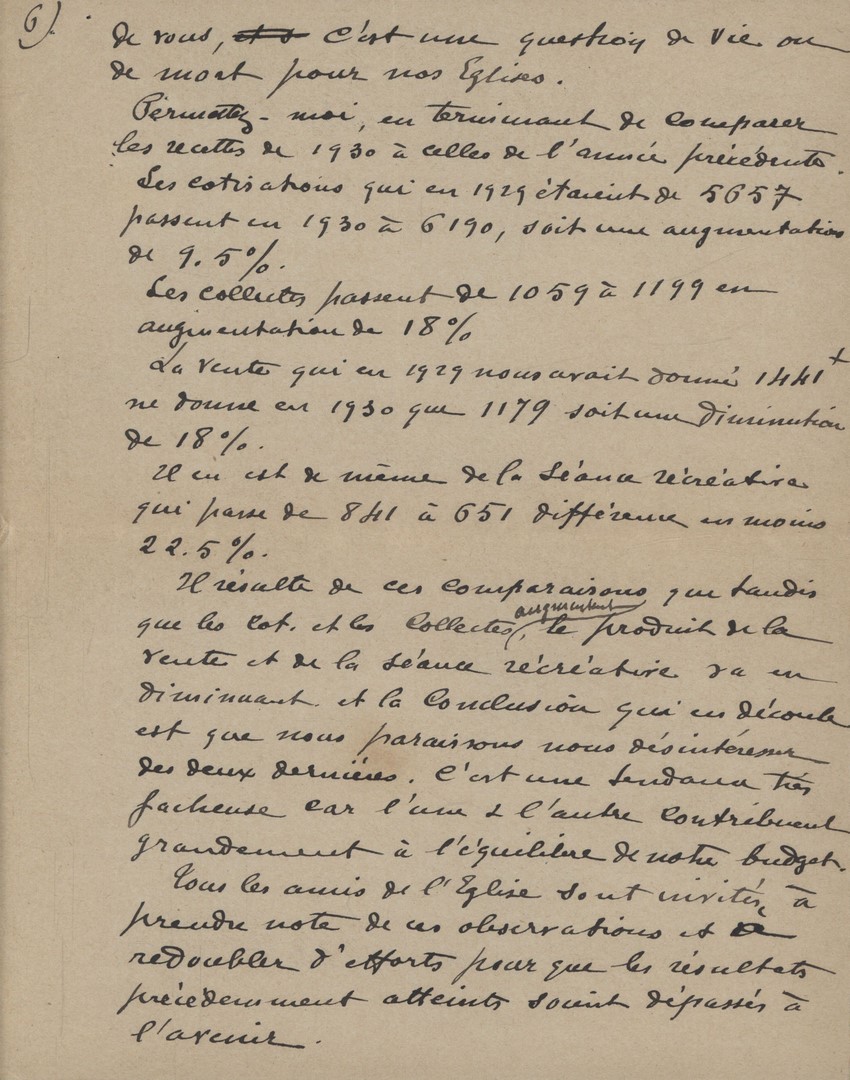 6).
de vous, et s c'est une question de vie ou
de mort pour nos Eglises.
Permettez-moi, en terminant de comparer
les recettes de 1930 à celles de l'année précédente.
Les cotisations qui en 1929 étaient de 5657
passent en 1930 à 6190, soit une augmentation
de 9.5%.
Les collectes passent de 1059 à 1199 en
augmentation de 18%
La vente qui en 1929 nous avait donné 1441 +
ne donne en 1930 que 1179 soit une diminution
de 18%.
Il en est de même de la séance récréative
qui passe de 841 à 651 différence en moins
22.5%.
Il résulte de ces comparaisons que tandis
augmentent
que les cot. et les collectes, le produit de la
vente et de la séance récréative va en
diminuant et la conclusion qui en découle
est que nous paraissons nous désintéresser
des deux dernières. C'est une tendance très
facheuse car l'une & l'autre contribuent
grandement à l'équilibre de notre budget.
Tous les amis de l'Eglise sont invités à
prendre note de ces observations et
redoubler d'efforts pour que les résultats
précédemment atteints soient dépassés à
l'avenir.